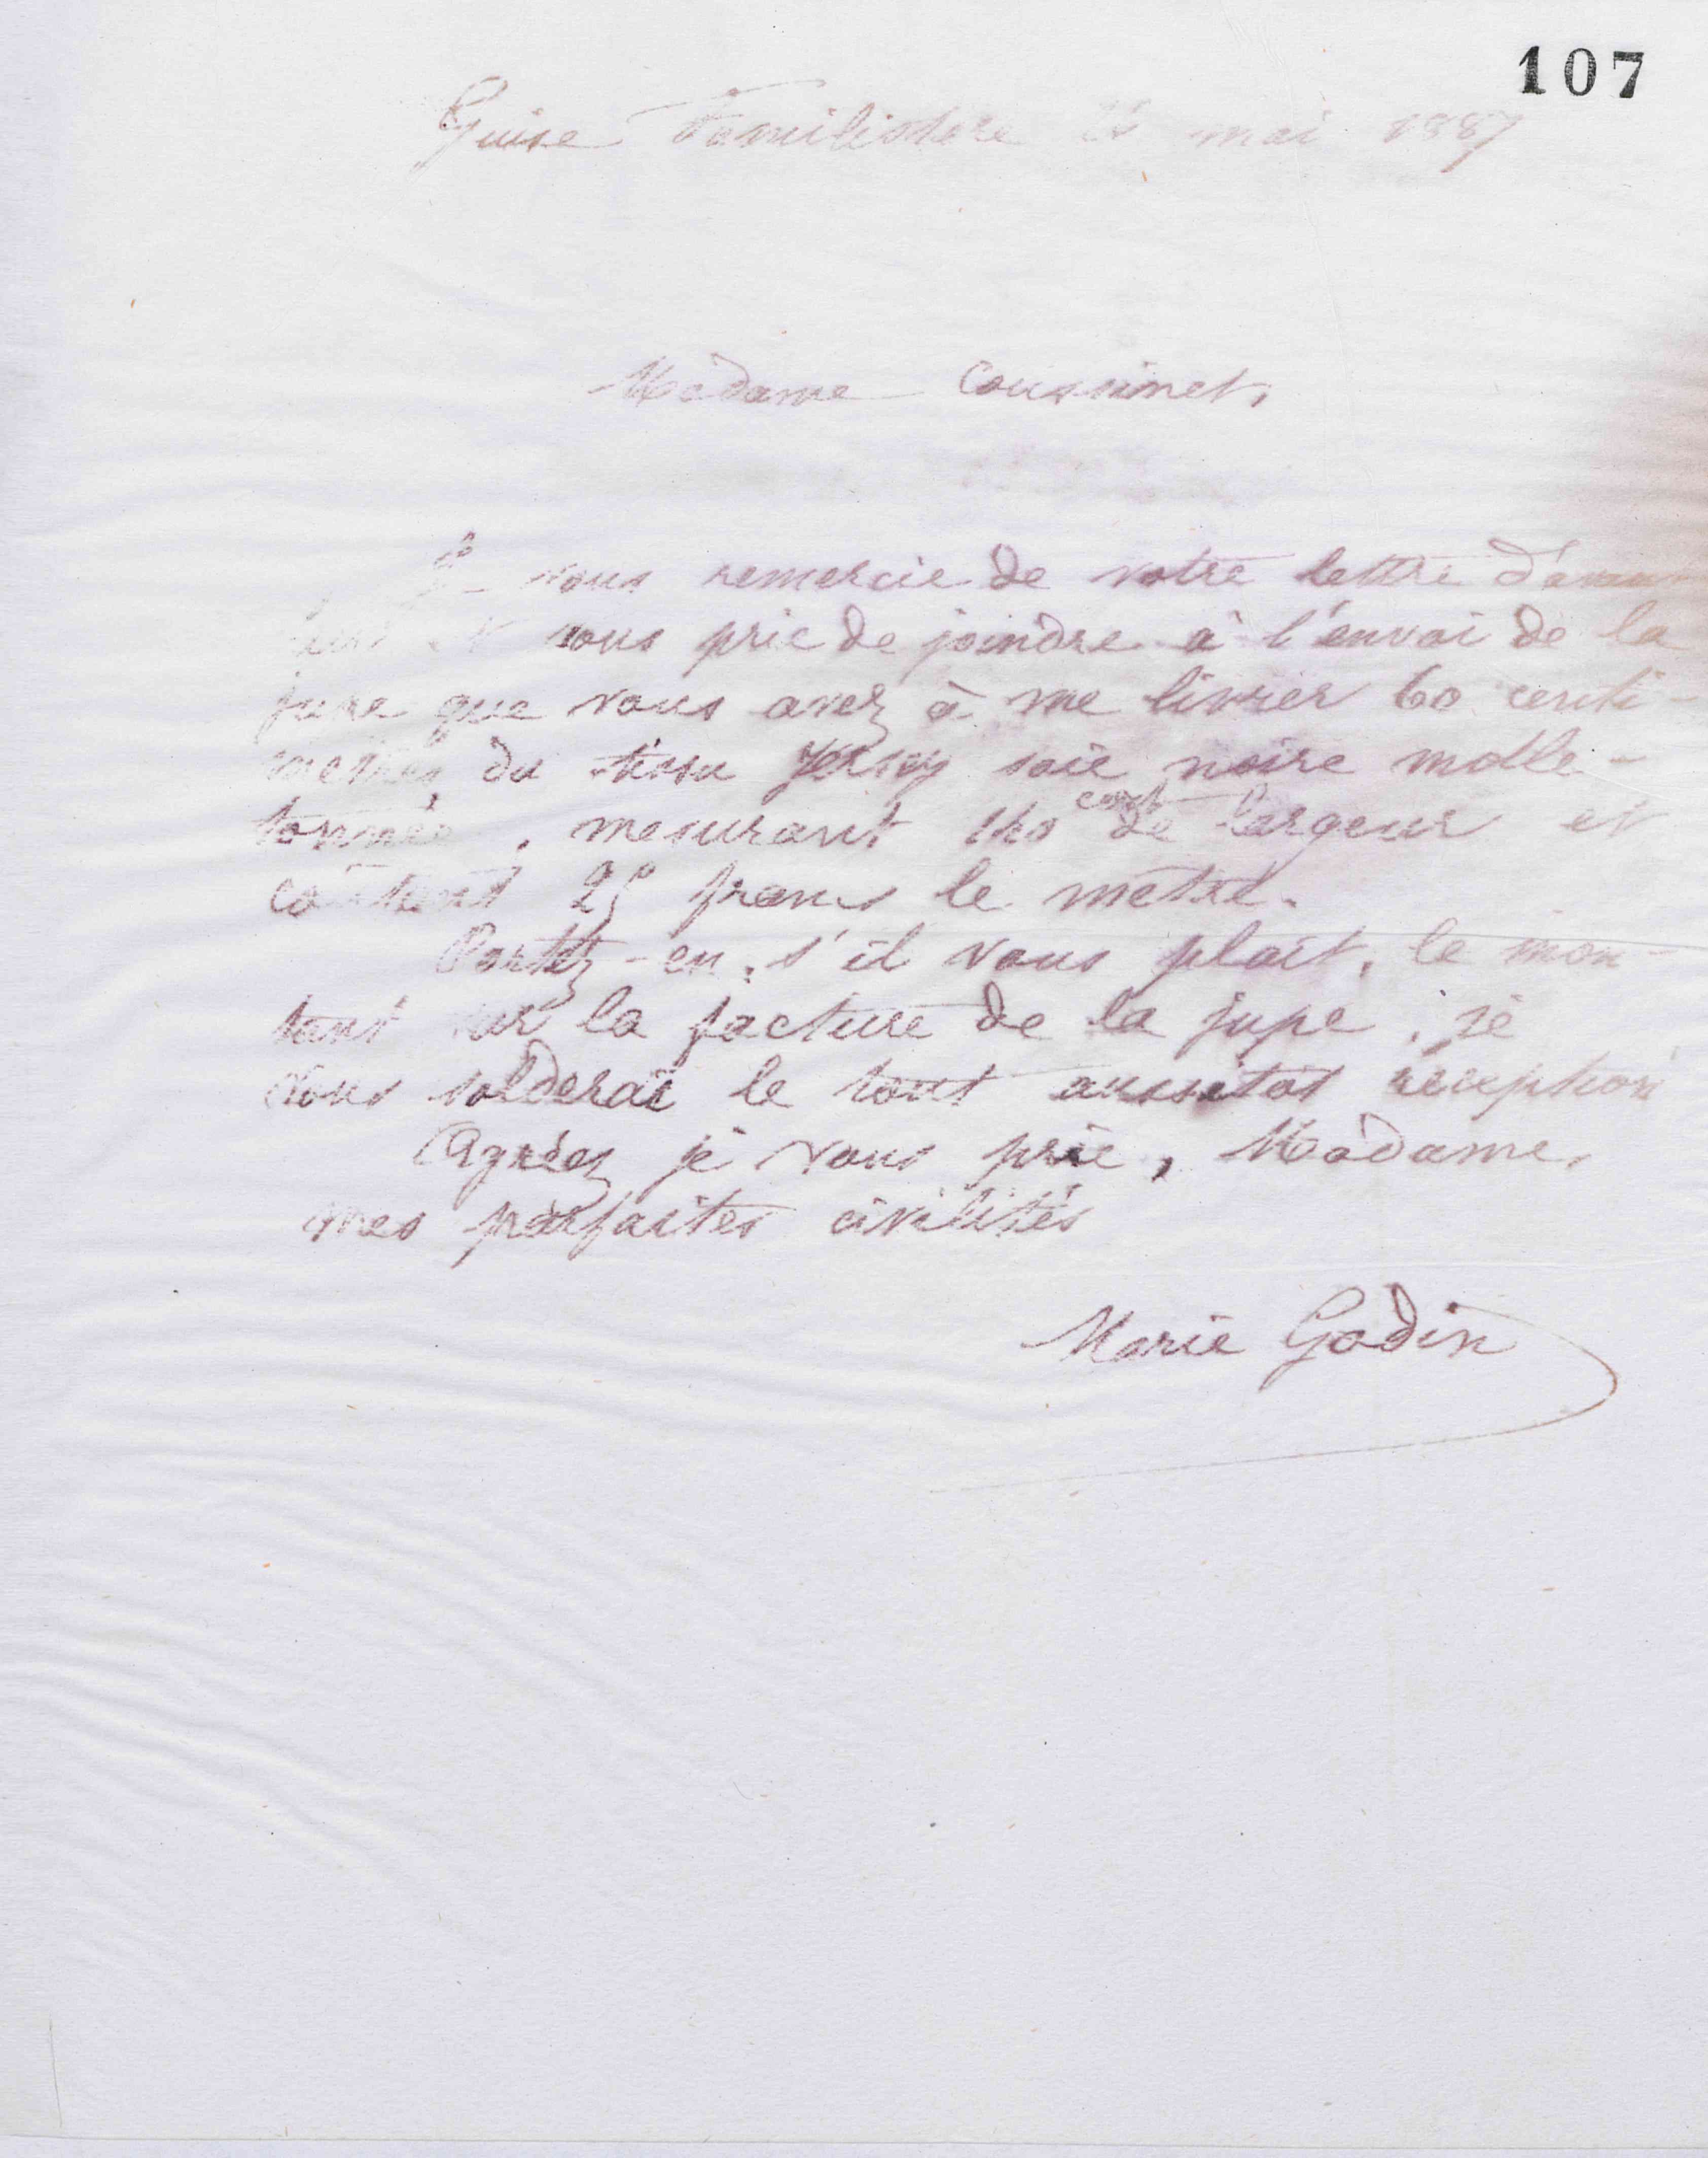 107
Guise Familistère mai 1887
Madame Coussinet,
Je vous remercie de votre lettre d'avant
vous prie de joindre à l'envoi de la
jupe que vous avez à me livrer 60 centi-
mètres du tissu Jersey soie noire molle-
tonnée, mesurant 120 cent de largeur et
coûtant 25 francs le mètre.
Portez-en, s'il vous plait, le mon-
tant sur la facture de la jupe, je
vous solderai le tout aussitôt réception
Agréez je vous prie, Madame,
mes parfaites civilités
Marie Godin